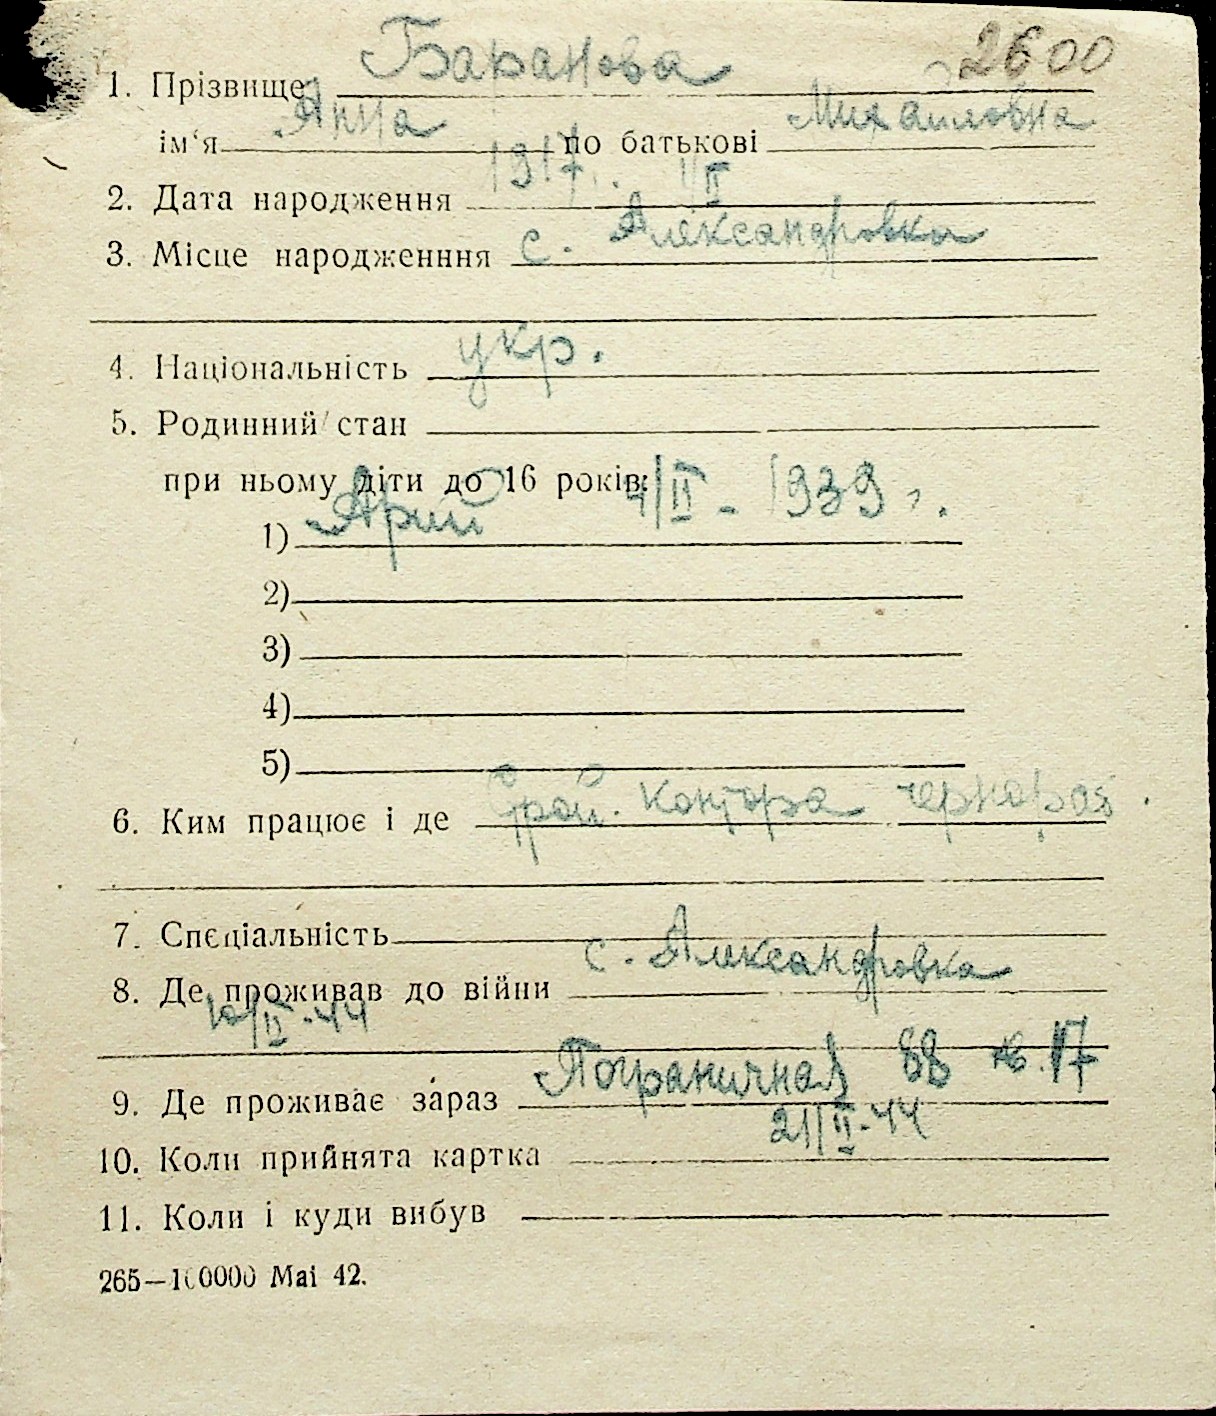 2600
1. Прізвище Баранова
ім‘я Анна по батькові Михайловна
2. Дата народження 1917. 1/II
3. Місце народженння с. Александровка
4. Національність укр.
5. Родинний стан
при ньому діти до 16 років:
1) Юрий 4/II - 1939 г.
2)
3)
4)
5)
6. Ким працює і де Строй. контора чернораб.
7. Спєціальність
8. Де проживав до війни с. Александровка
10/II-44
9. Де проживає зараз Пограничная 88 кв. 17
10. Коли прийнята картка 21/II-44
11. Коли і куди вибув
265—100000 Mai 42.